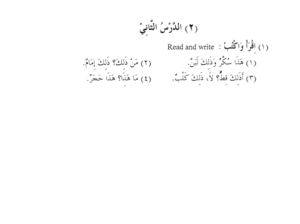 (٢) الدَّرْسُ الثَّانِيْ
(١) اِقْرَأْ وَاكْتُبْ : Read and write
(١) هَذَا سُكَّرٌ وَذَلِكَ لَبَنٌ. (٢) مَنْ ذَلِكَ؟ ذَلِكَ إِمَامٌ.
(٣) أَذَلِكَ قِطٌّ؟ لَا، ذَلِكَ كَلْبٌ. (٤) مَا هَذَا؟ هَذَا حَجَرٌ.